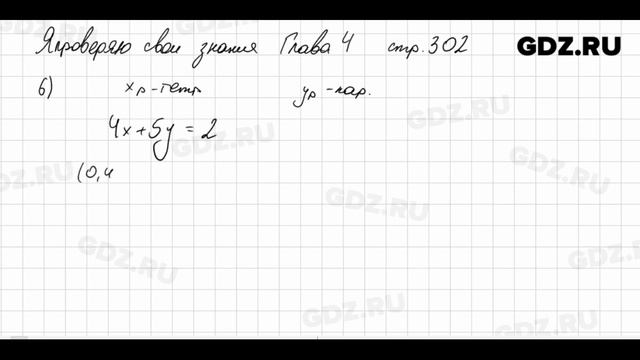 Я проверяю свои знания Глава 4 стр. 302
GDZ.RU
6) xр - тетр yр - пар.
4x + 5y = 2
(0,4
GDZ.RU
GDZ.RU
GDZ.RU
GDZ.RU
GDZ.RU
GDZ.RU
GDZ.RU
GDZ.RU